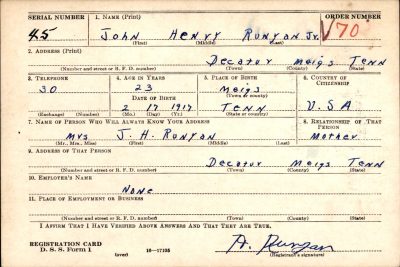 SERIAL NUMBER 1. NAME (Print) ORDER NUMBER
45 John Henry Runyon Jr. V70
(First) (Middle) (Last)
2. ADDRESS (Print)
Decatur Meigs Tenn
(Number and street or R. F. D. number) (Town) (County) (State)
3. TELEPHONE 4. AGE IN YEARS 5. PLACE OF BIRTH 6. COUNTRY OF CITIZENSHIP
30 23 Meigs
DATE OF BIRTH (Town or county)
2 17 1917 Tenn U.S.A
(Exchange) (Number) (Mo.) (Day) (Yr.) (State or country)
7. NAME OF PERSON WHO WILL ALWAYS KNOW YOUR ADDRESS 8. RELATIONSHIP OF THAT PERSON
Mrs J. H. Runyon Mother
(Mr., Mrs., Miss) (First) (Middle) (Last)
9. ADDRESS OF THAT PERSON
Decatur Meigs Tenn
(Number and street or R. F. D. number) (Town) (County) (State)
10. EMPLOYER'S NAME
None
11. PLACE OF EMPLOYMENT OR BUSINESS
(Number and street or R. F. D. number) (Town) (County) (State)
I AFFIRM THAT I HAVE VERIFIED ABOVE ANSWERS AND THAT THEY ARE TRUE.
REGISTRATION CARD
D. S. S. Form 1 16—17105
(over) (Registrant's signature)